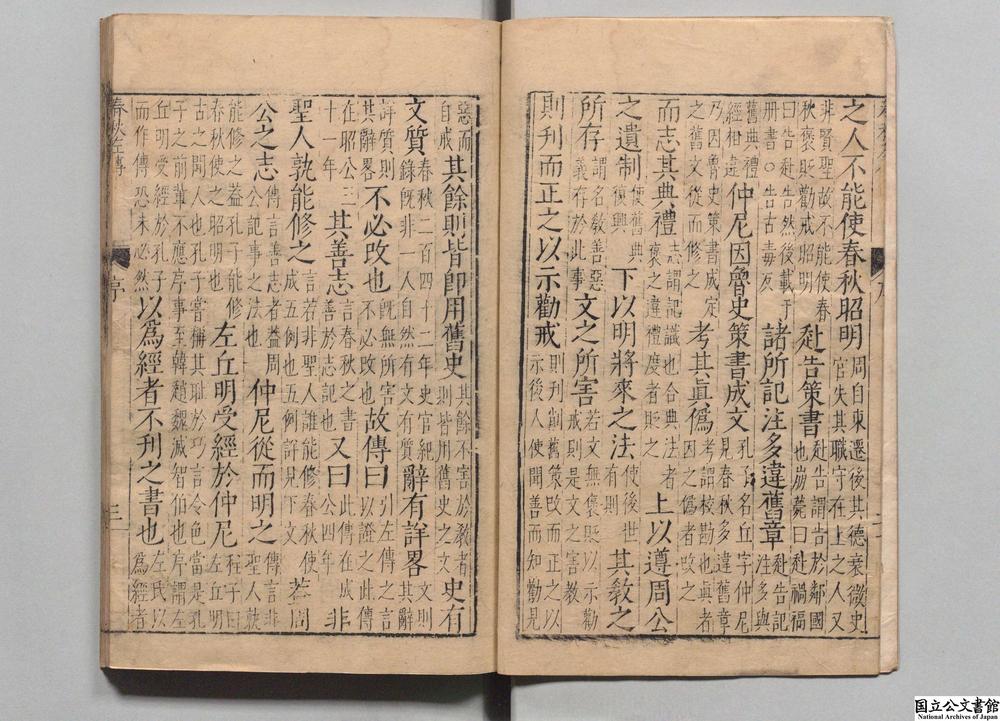 之人不能使春秋昭明周自東遷後其德衰微史官失其職守在上之人又
非賢聖故不能使春秋褒貶勸戒昭明赴告策書赴告謂告於鄰國也崩薨曰赴禍福
曰告赴告然後載于册書○告古毒反諸所記注多違舊章赴告記注多與
舊典禮經相違仲尼因魯史策書成文孔子名丘字仲尼見春秋多違舊章
乃因魯史策書成定之舊文從而修之考其眞僞考謂校勘也眞者因之僞者改之
而志其典禮志謂記識也合典法者褒之違禮度者貶之上以遵周公
之遺制使舊典復興下以明將來之法使後世有則其教之
所存謂名教善惡義存於此事文之所害若文無褒貶以示勸戒則是文之害教
則刊而正之以示勸戒則刊削策文而正之以示後人使聞善而知勸見
惡而自戒其餘則皆即用舊史其餘不害於教者則皆用舊史之文史有
文質春秋二百四十二年史官紀錄既非一人自然有文有質辭有詳畧文則其辭
詳質則其辭畧不必改也既無所害不必改也故傳曰引左傳之言以證之此傳
在昭公三十一年其善志言春秋之書善於志記也又曰此傳在成公四年非
聖人孰能修之言若非聖人誰能修春秋使成五例也五例詳見下文葢周
公之志傳言善志者葢周公記事之法也仲尼從而明之傳言非聖人孰
能修之葢孔子能修春秋使之昭明也左丘明受經於仲尼程子曰左丘明
古之聞人也孔子嘗稱其恥於巧言令色當是孔子之前輩不應序事至韓趙魏滅智伯也序謂左
丘明受經於孔子而作傳恐未必然以爲經者不刊之書也左氏以爲經者
春秋左傳 序 三
国立公文書館
National Archives of Japan